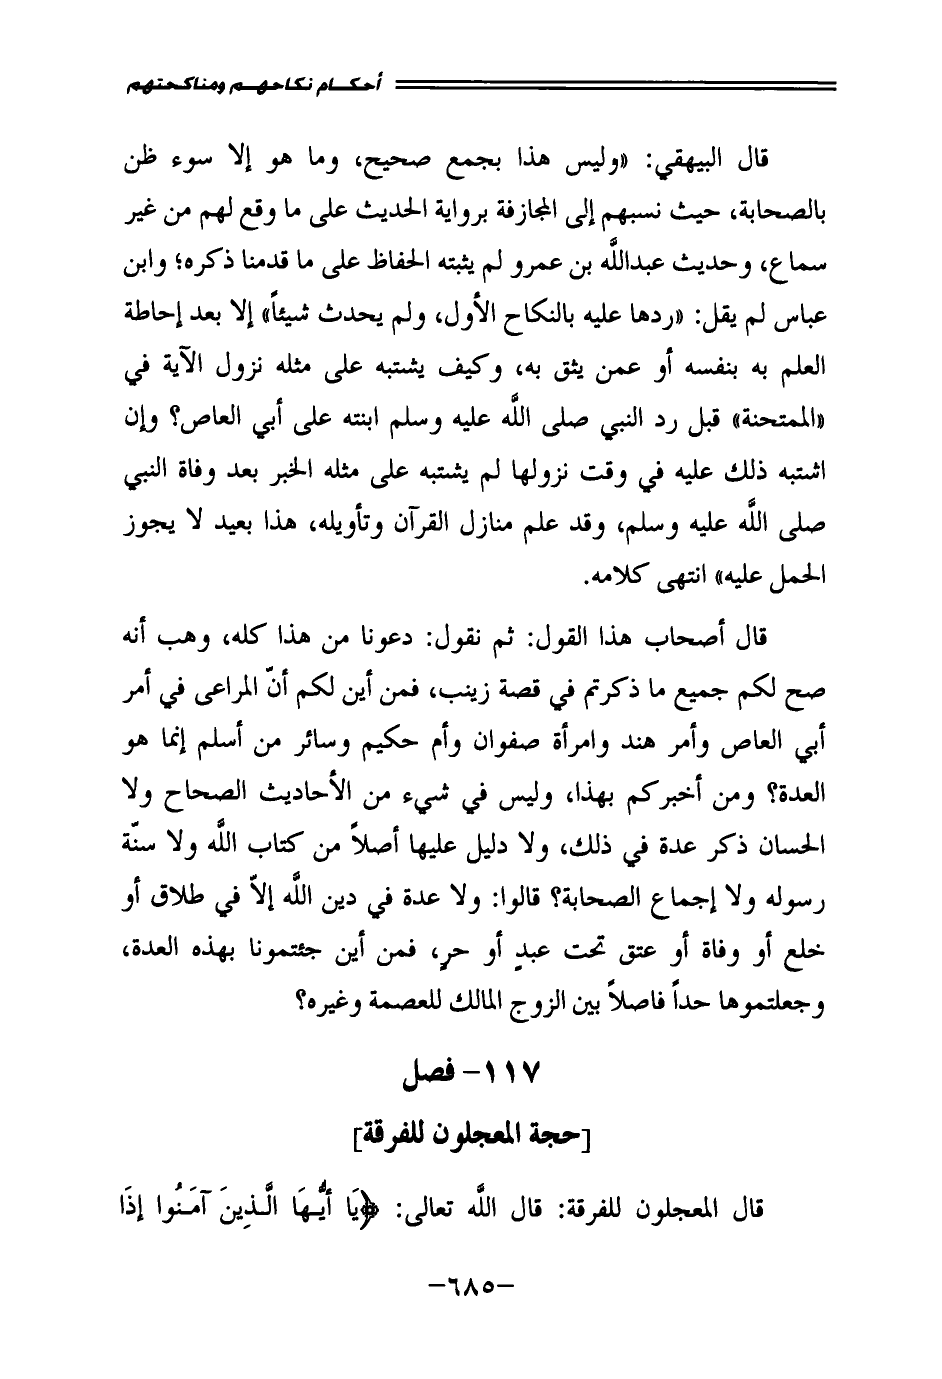 أحكام نكاحهم ومناكحتهم
قال البيهقي: «وليس هذا بجمع صحيح، وما هو إلا سوء ظن
بالصحابة، حيث نسبهم إلى المجازفة برواية الحديث على ما وقع لهم من غير
سماع، وحديث عبدالله بن عمرو لم يثبته الحفاظ على ما قدمنا ذكره؛ وابن
عباس لم يقل: «ردها عليه بالنكاح الأول، ولم يحدث شيئاً» إلا بعد إحاطة
العلم به بنفسه أو عمن يثق به، وكيف يشتبه على مثله نزول الآية في
«الممتحنة» قبل رد النبي صلى الله عليه وسلم ابنته على أبي العاص؟ وإن
اشتبه ذلك عليه في وقت نزولها لم يشتبه على مثله الخبر بعد وفاة النبي
صلى الله عليه وسلم، وقد علم منازل القرآن وتأويله، هذا بعيد لا يجوز
الحمل عليه» انتهى كلامه.
قال أصحاب هذا القول: ثم نقول: دعونا من هذا كله، وهب أنه
صح لكم جميع ما ذكرتم في قصة زينب، فمن أين لكم أنّ المراعى في أمر
أبي العاص وأمر هند وامرأة صفوان وأم حكيم وسائر من أسلم إنما هو
العدة؟ ومن أخبركم بهذا، وليس في شيء من الأحاديث الصحاح ولا
الحسان ذكر عدة في ذلك، ولا دليل عليها أصلاً من كتاب الله ولا سنّة
رسوله ولا إجماع الصحابة؟ قالوا: ولا عدة في دين الله إلاّ في طلاق أو
خلع أو وفاة أو عتق تحت عبدٍ أو حرٍ، فمن أين جئتمونا بهذه العدة،
وجعلتموها حداً فاصلاً بين الزوج المالك للعصمة وغيره؟
١١٧- فصل
[حجة المعجلون للفرقة]
قال المعجلون للفرقة: قال الله تعالى: ﴿يَا أَيُّهَا الَّذِينَ آمَنُوا إِذَا
-٦٨٥-